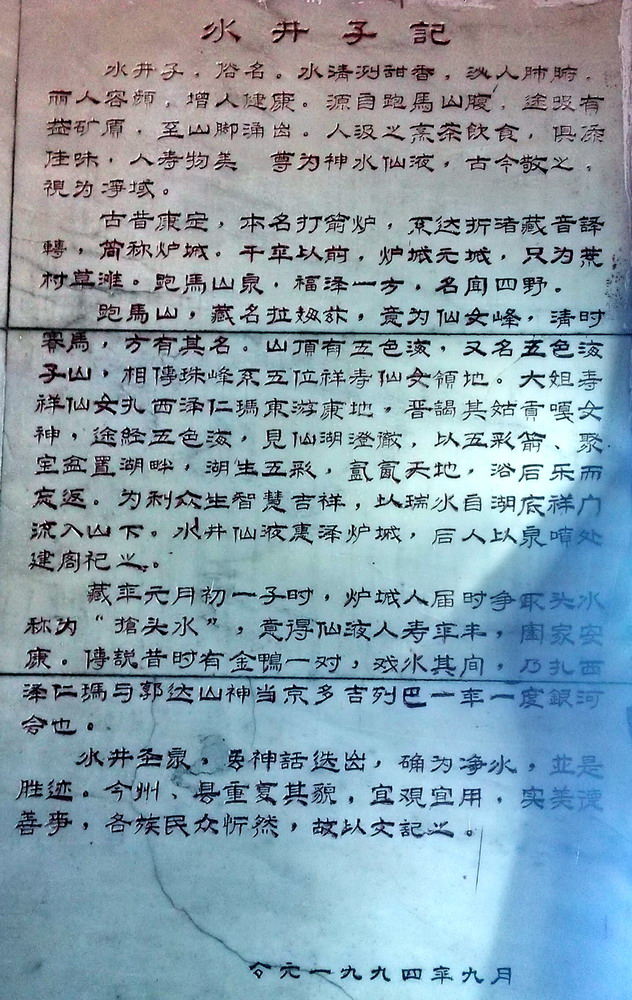 水井子記
水井子，俗名。水清冽甜香，沁人肺腑，
丽人容颜，增人健康。源自跑馬山腹，途吸有
益矿质，至山脚涌出。人汲之烹茶飲食，俱添
佳味，人寿物美，尊为神水仙液，古今敬之，
視为净域。
古昔康定，本名打箭炉，系达折渚藏音譯
轉，简称炉城。千年以前，炉城无城，只为荒
村草滩。跑馬山泉，福泽一方，名闻四野。
跑馬山，藏名拉姆，意为仙女峰，清时
賽馬，方有其名。山頂有五色海，又名五色海
子山，相傳珠峰系五位祥寿仙女領地。大姐寿
祥仙女扎西泽仁瑪東游康地，晋謁其姑貢嘎女
神，途经五色海，見仙湖澄徹，以五彩箭、聚
宝盆置湖畔，湖生五彩，氤氲天地，浴后乐而
忘返。为利众生智慧吉祥，以瑞水自湖底祥门
流入山下。水井仙液惠泽炉城，后人以泉喷处
建阁祀之。
藏年元月初一子时，炉城人届时争取头水
称为“搶头水”，意得仙液人寿年丰，阖家安
康。傳説昔时有金鴨一对，戏水其间，乃扎西
泽仁瑪与郭达山神当京多吉列巴一年一度銀河
会也。
水井圣泉，虽神話迭出，确为净水，並是
胜迹。今州、县重复其貌，宜观宜用，实美德
善事，各族民众忻然，故以文記之。
公元一九九四年九月